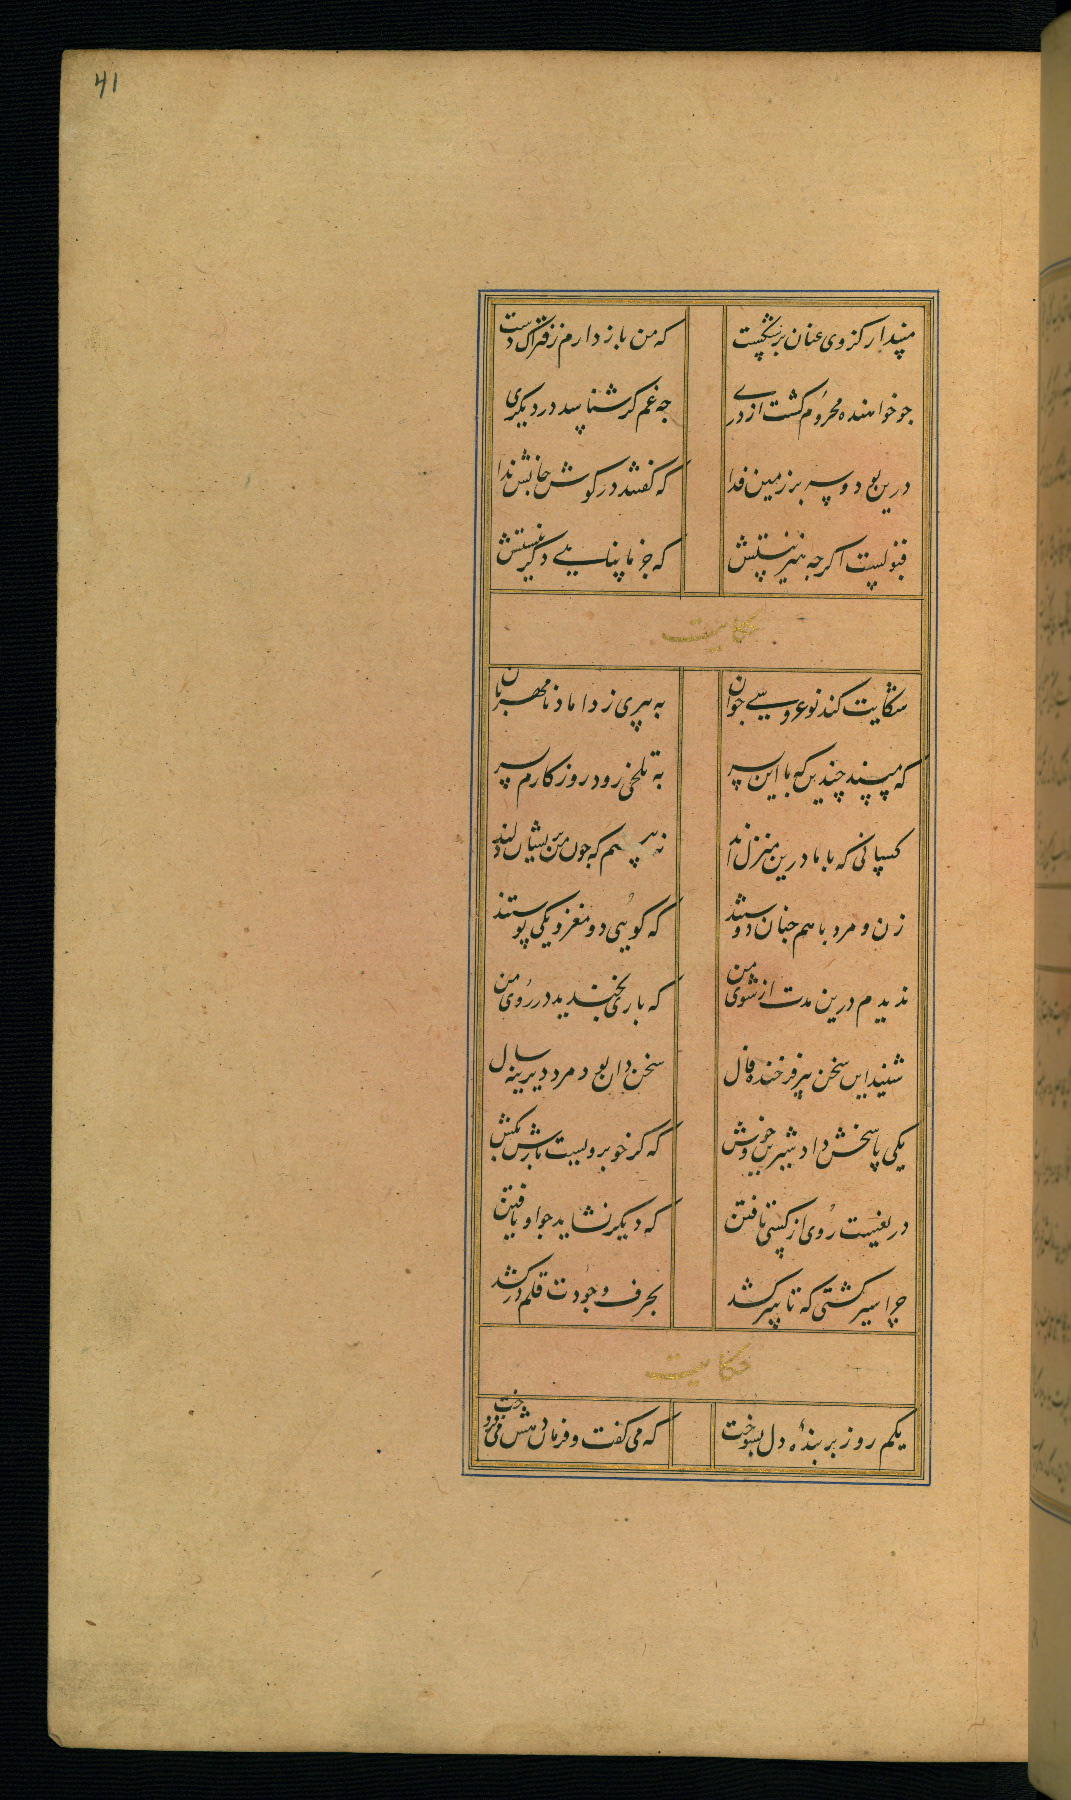 41
مپندار کز وی عنان برشکست
که من باز دارم ز فتراک دست
جو خواهنده محروم کشت از دری
جه غم کر شناسد در دیکری
درین بود و سر بر زمین فدا
که کفتند در کوش جانش ندا
قبولست اکرجه هنر نیستش
که جز ما پناهی دکر نیستش
حکایت
شکایت کند نوعروسی جوان
به پیری ز داماد نامهربان
که مپسند چندین که با این پسر
به تلخی رود روزکارم بسر
کسانی که با ما درین منزل اند
نه بینم که جون من پریشان دلند
زن و مرد با هم جنان دوستند
که کویی دو مغز و یکی پوستند
ندیدم درین مدت از شوی من
که باری بخندید در روی من
شنید این سخن پیر فرخنده فال
سخن دان بود مرد دیرینه سال
یکی پاسخش داد شیرین و خوش
که کر خوبرویست بارش بکش
دریغست روی از کسی تافتن
که دیکر نشاید جو او یافتن
چرا سرکشی زانکه کر سرکشد
بحرف وجودت قلم درکشد
حکایت
یکم روز بر بندهٔ دل بسوخت
که می کفت و فرماندهش می فروخت